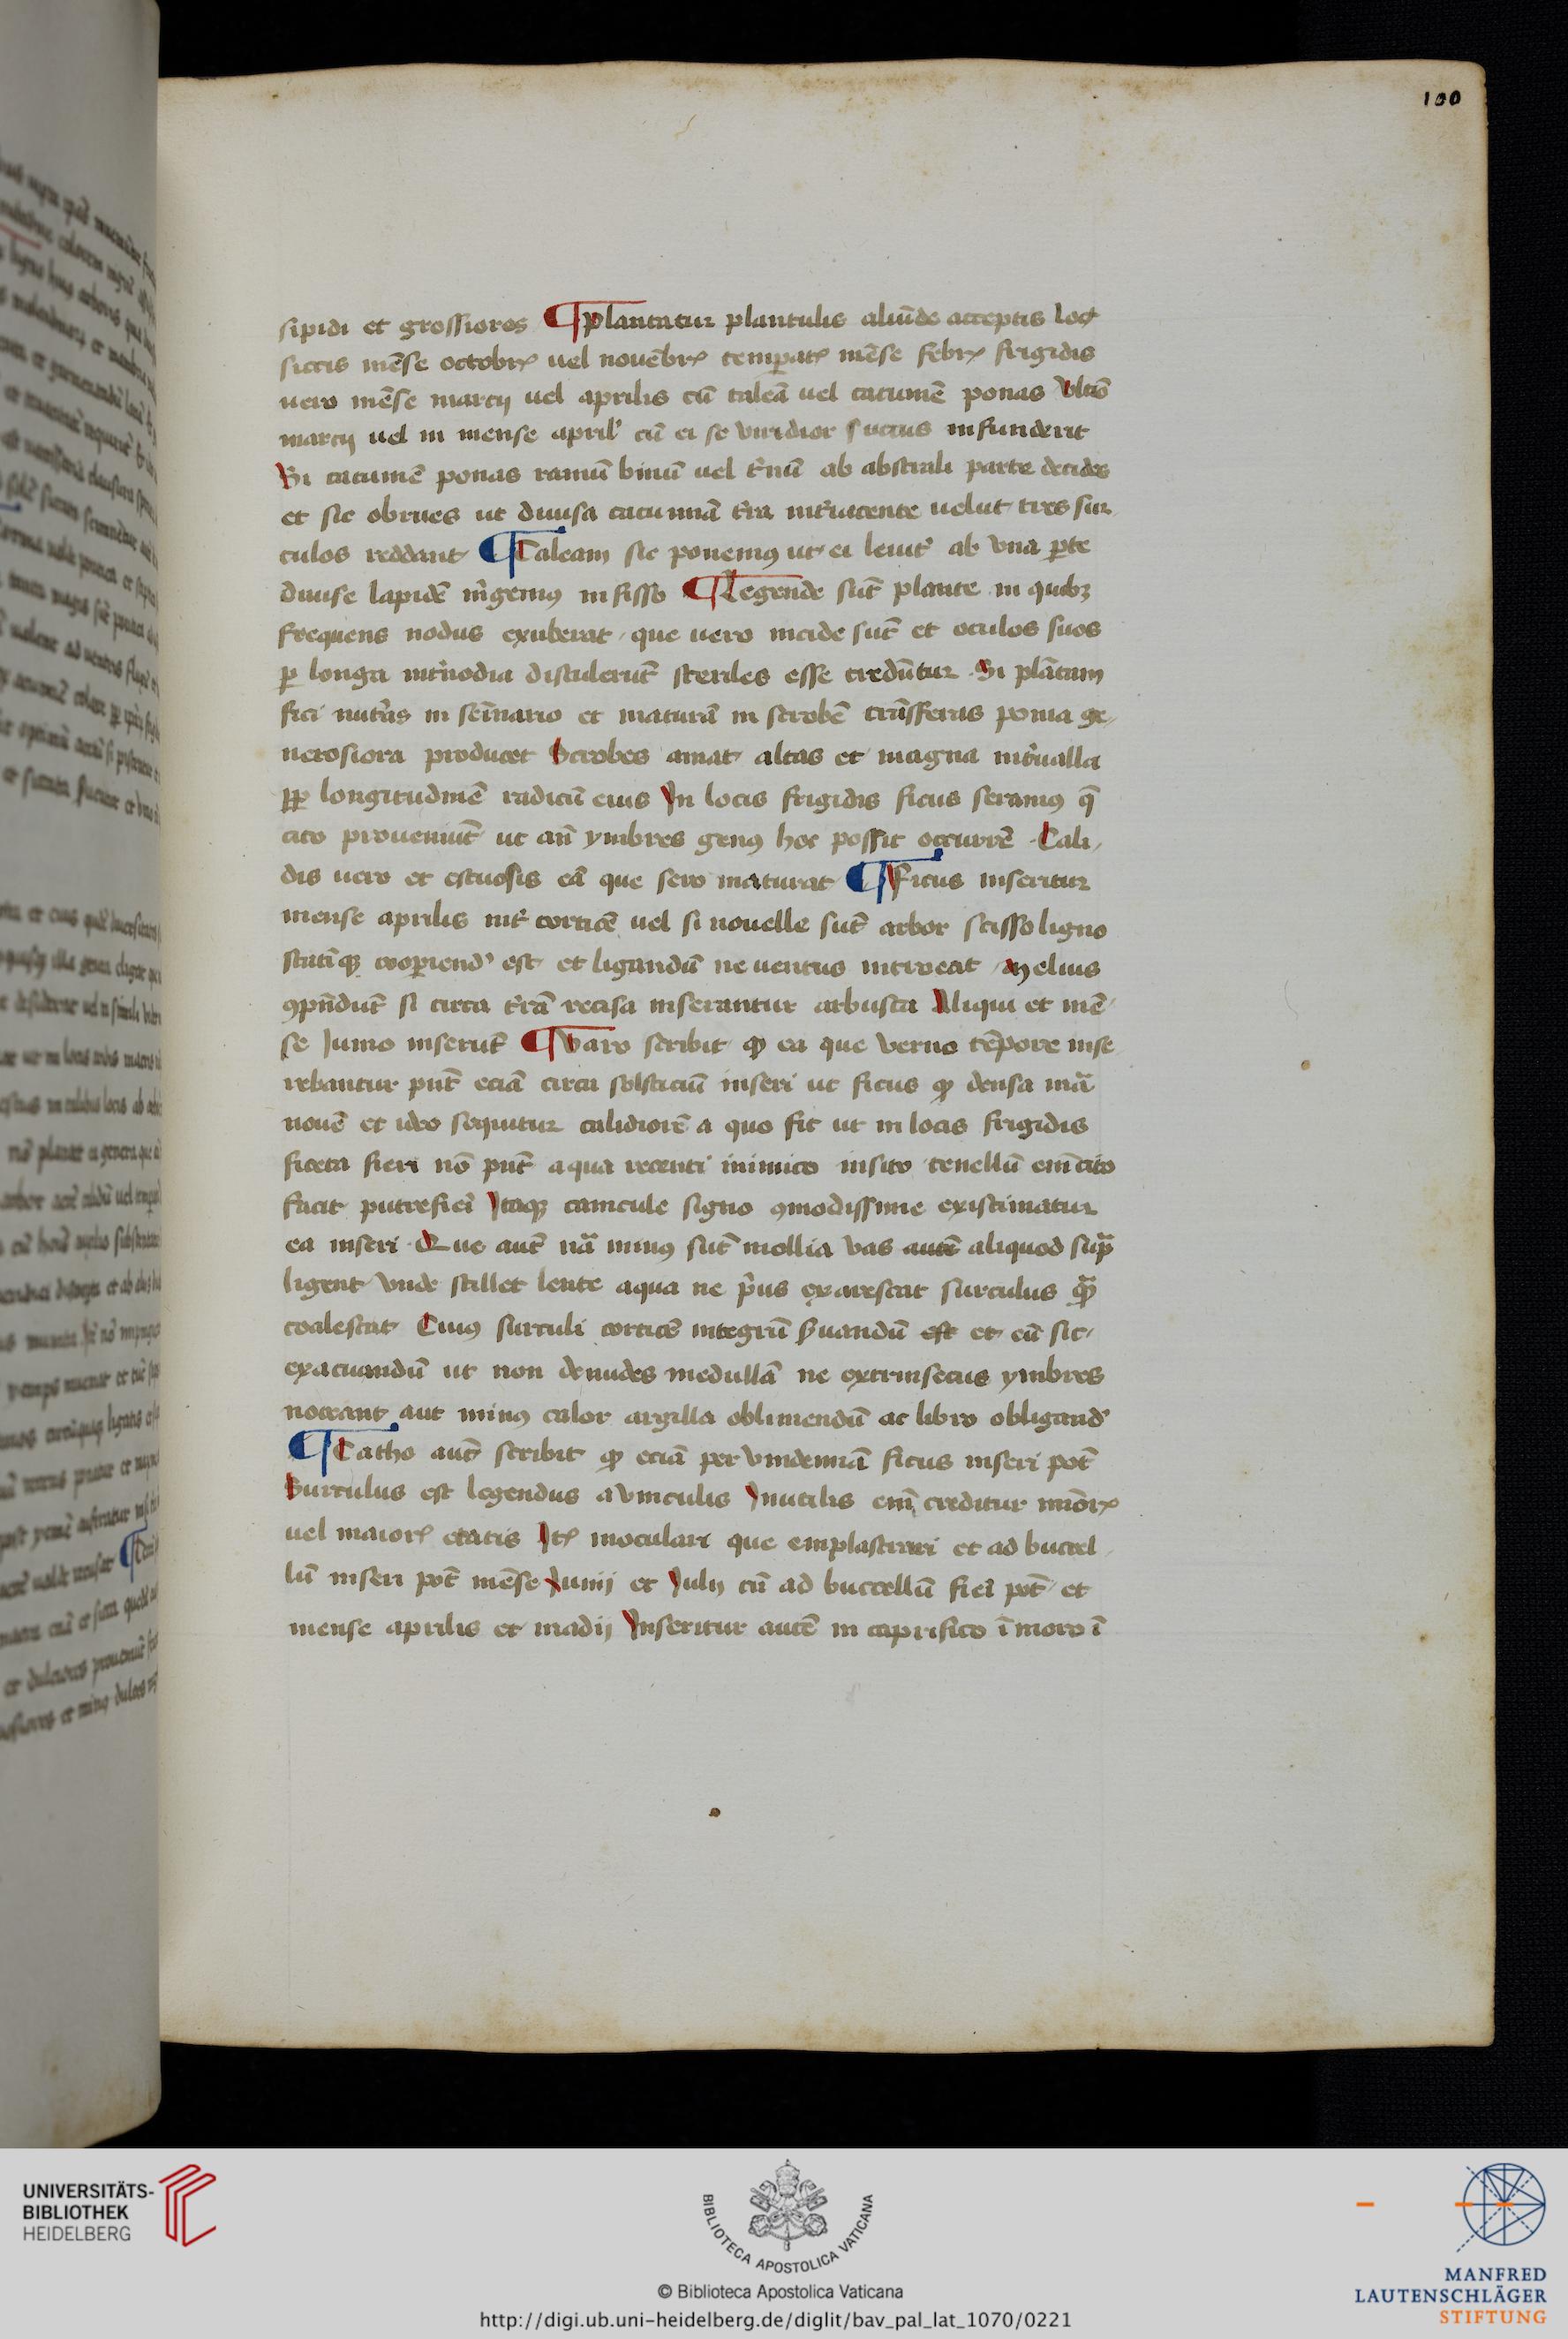 100
sipidi et grossiores ¶ Plantatur plantulis aliūde acceptis loc
siccis mēse octobrꝭ uel nouēbrꝭ temꝑatꝭ mēse febrꝭ frigidis
uero mēse marcij uel aprilis cū taleā uel cacumē ponas Vltiō
marcij uel in mense april' cū ei se viridior succus infuderit
Si cacumē ponas ramū binū uel t̄nū ab abstrali parte decides
et sic obrues ut diuisa cacuminā t̄ra int̄iacente uelut tres sur
culos reddant ¶ Taleam sic ponemꝰ ut ei leuit̄ ab vna ꝑte
diuise lapidē īn̄gemꝰ in fisso ¶ Legende sūt plante in quibꝫ
frequens nodus exuberat que uero nicide sūt et oculos suos
ꝑ longa int̄nodia distulerūt steriles esse credūtur Si plātam
fici nut̄as in sēinario et maturā in scrobē trāsferas poma ge
nerosiora producet Scrobes amat altas et magna int̄ualla
ꝓp longitudinē radicū eius In locis frigidis ficus seramꝰ q̄
cito proueniūt ut añ ymbres genꝰ hoc possit occurrē Cali
dis uero et estuosis eā que sero maturat ¶ Ficus inseritur
mense aprilis int̄ corticē uel si nouelle sūt arbor scisso ligno
statīqꝫ cooꝑiend' est et ligandū ne uentus introeat Melius
ꝯpn̄dūt si circa t̄rā recisa inserantur arbusta Aliqui et mē
se Iunio inserūt ¶ Varo scribit ꝙ ea que verno tēpore inse
rebantur pn̄t eciā circa solsticiū inseri ut ficus ꝙ densa mā
nouē et ideo sequitur calidiorē a quo fit ut in locis frigidis
ficeta fieri nō pn̄t aqua recenti inimico insito tenellū enī cito
facit putrefiēi Itaqꝫ canicule signo ꝯmodissime existimatur
ea inseri Que aut̄ nā minꝰ sūt mollia vas autē aliquod supra
ligent vnde stillet lente aqua ne p̄us exarescat surculus qᷓꝫ
coalescat Cuiꝰ surculi corticē integrū s̄uandū est et eū sic
exacuandū ut non denudes medullā ne extrinsecus ymbres
noceant aut nimiꝰ calor argilla oblimendū ac libro obligand'
¶ Catho aut̄ scribit ꝙ eciā per vindemiā ficus inseri pōt
Surculus est legendus a vinculis Inutilis enī creditur miōrꝭ
uel maiorꝭ etatis Itꝭ inoculari que emplastrari et ad buccel
lū inseri pōt mēse Iunij et Iulij cū ad buccellū fiēi pōt et
mense aprilis et madij Inseritur autē in caprifico ī moro ī
UNIVERSITÄTS-
BIBLIOTHEK
HEIDELBERG
BIBLIOTECA APOSTOLICA VATICANA
© Biblioteca Apostolica Vaticana
http://digi.ub.uni-heidelberg.de/diglit/bav_pal_lat_1070/0221
MANFRED
LAUTENSCHLÄGER
STIFTUNG